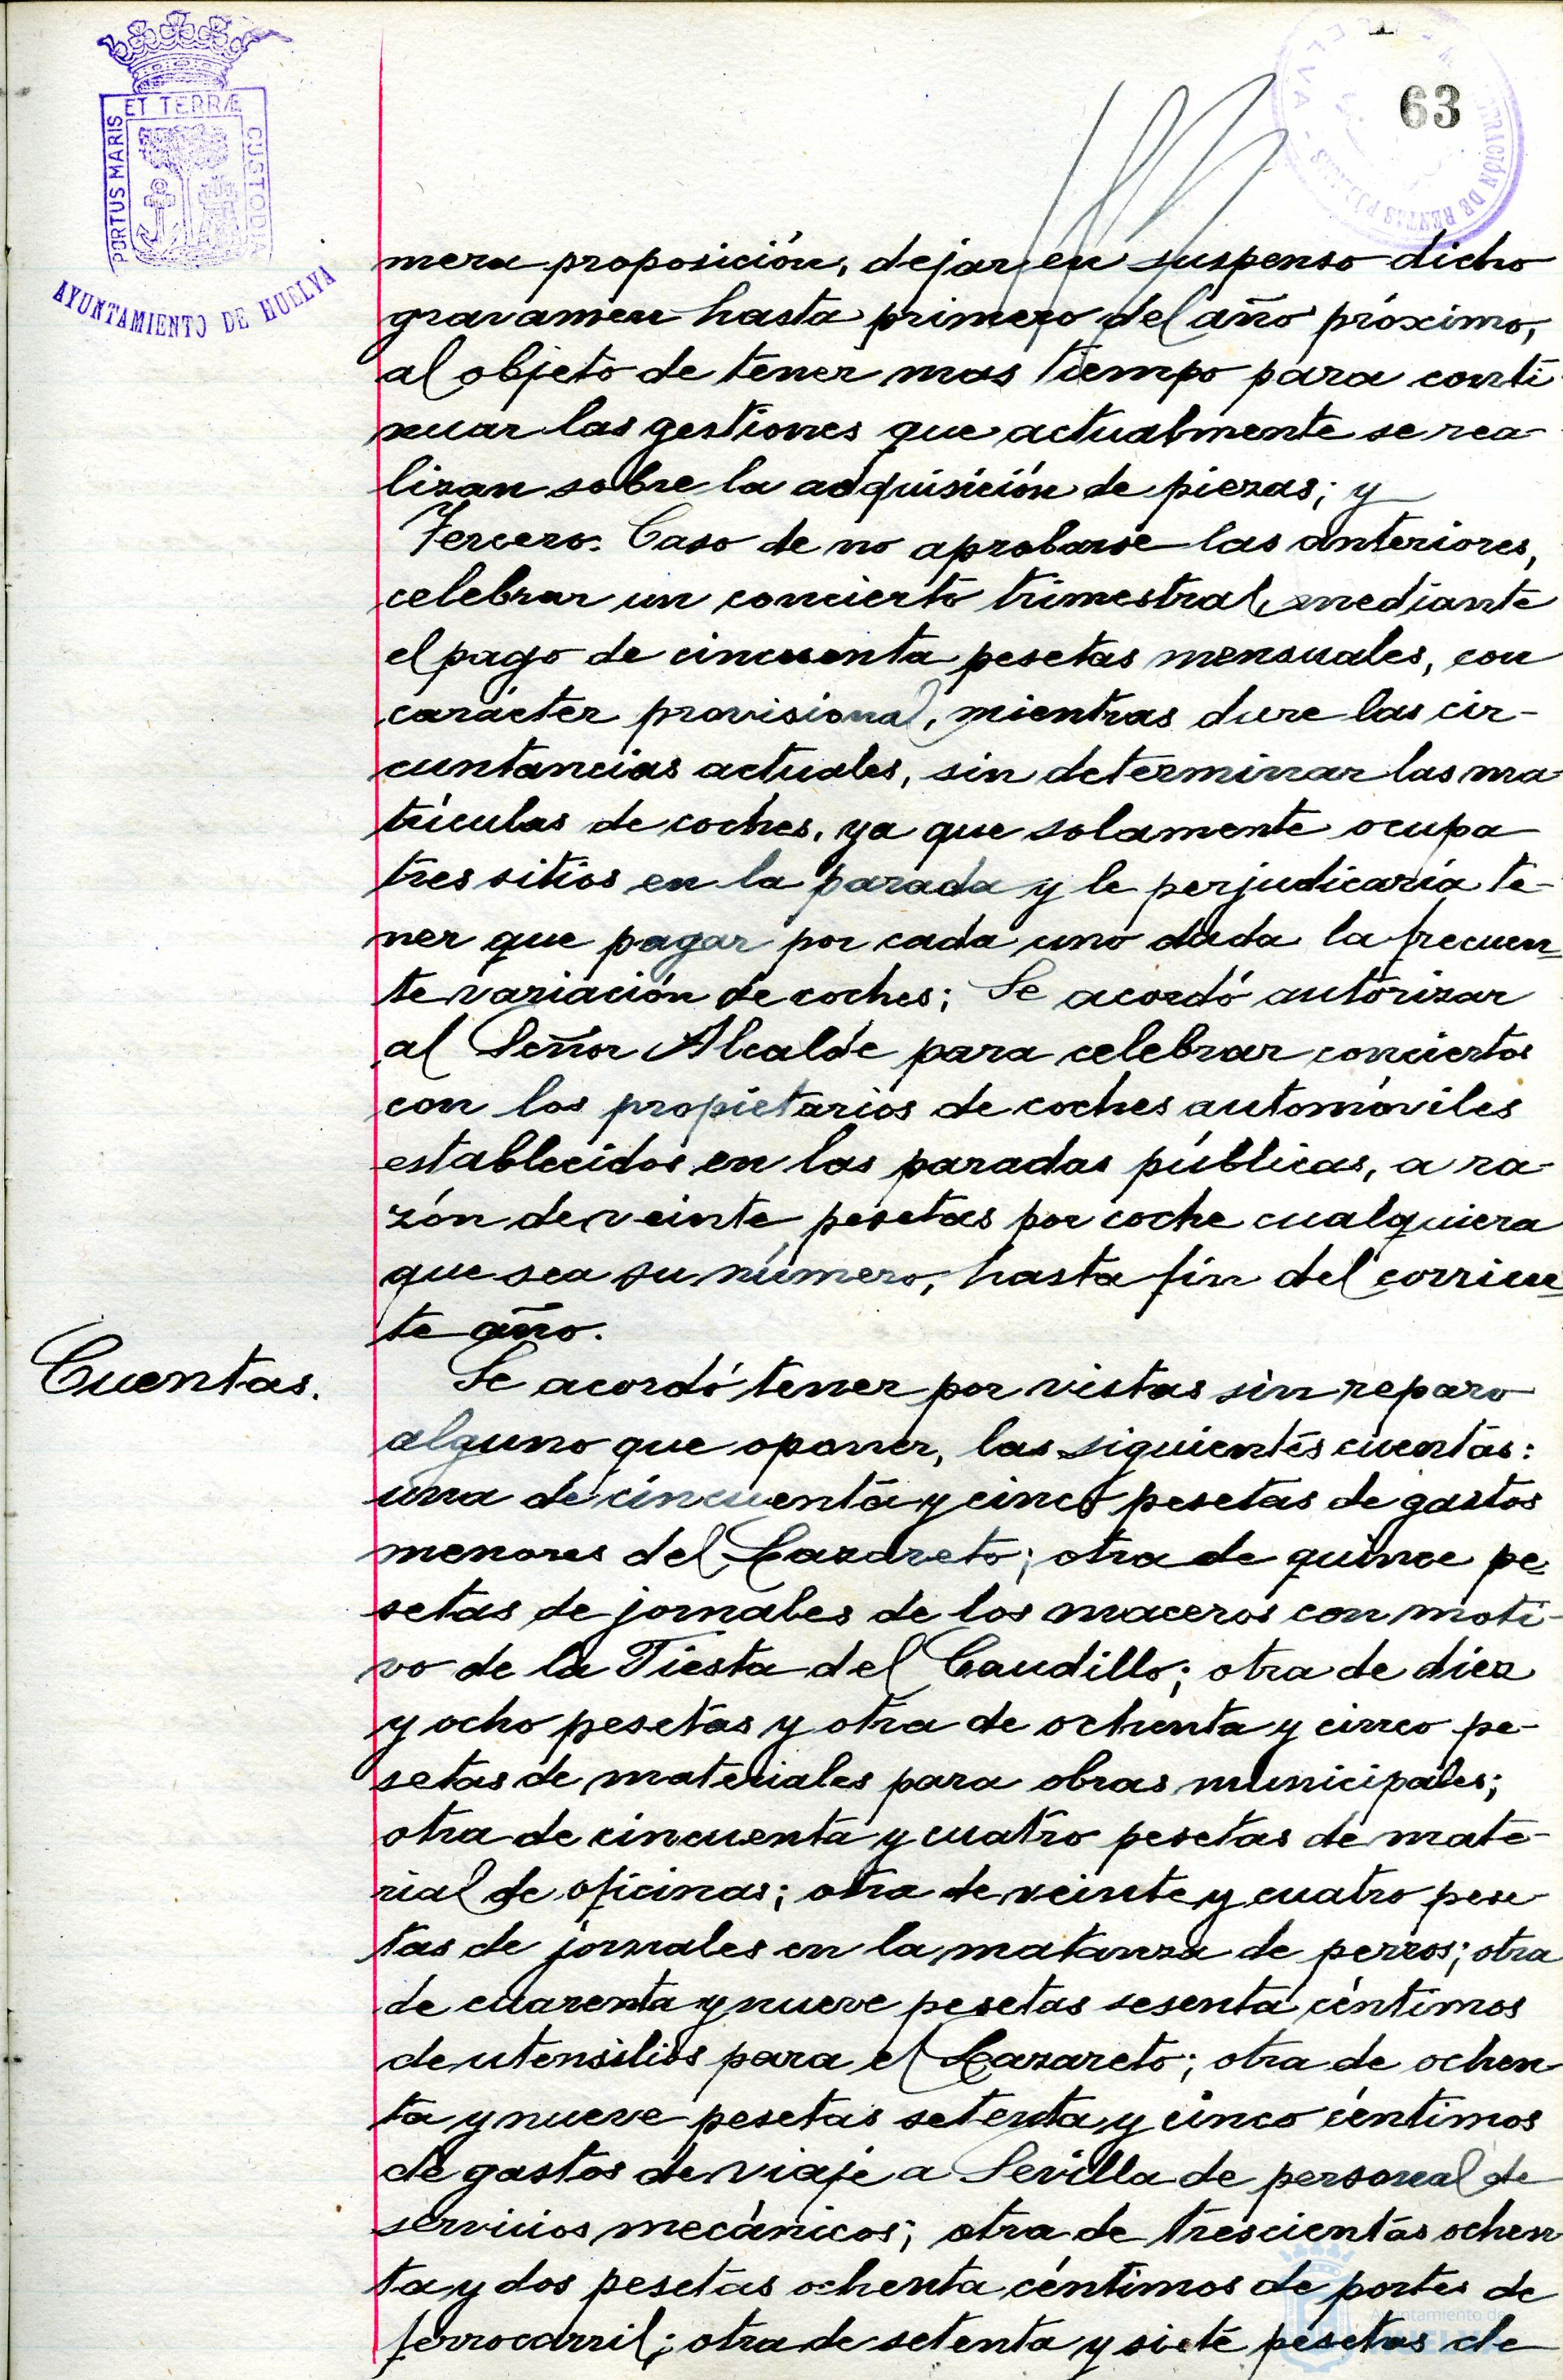 PORTUS MARIS
ET TERRÆ
CUSTODIA
AYUNTAMIENTO DE HUELVA
63
mera proposición, dejar en suspenso dicho
gravamen hasta primero del año próximo,
al objeto de tener mas tiempo para conti-
nuar las gestiones que actualmente se rea-
lizan sobre la adquisición de piezas; y
Tercero. Caso de no aprobarse las anteriores,
celebrar un concierto trimestral, mediante
el pago de cincuenta pesetas mensuales, con
carácter provisional, mientras dure las cir-
cuntancias actuales, sin determinar las ma-
trículas de coches, ya que solamente ocupa
tres sitios en la parada y le perjudicaría te-
ner que pagar por cada uno dada la frecuen-
te variación de coches; Se acordó autorizar
al Señor Alcalde para celebrar conciertos
con los propietarios de coches automóviles
establecidos en las paradas públicas, a ra-
zón de veinte pesetas por coche cualquiera
que sea su número, hasta fin del corrien-
te año.
Cuentas.
Se acordó tener por vistas sin reparo
alguno que oponer, las siguientes cuentas:
una de cincuenta y cinco pesetas de gastos
menores del Lazareto; otra de quince pe-
setas de jornales de los maceros con moti-
vo de la Fiesta del Caudillo; otra de diez
y ocho pesetas y otra de ochenta y cinco pe-
setas de materiales para obras municipales;
otra de cincuenta y cuatro pesetas de mate-
rial de oficinas; otra de veinte y cuatro pese-
tas de jornales en la matanza de perros; otra
de cuarenta y nueve pesetas sesenta céntimos
de utensilios para el Lazareto; otra de ochen-
ta y nueve pesetas setenta y cinco céntimos
de gastos de viaje a Sevilla de personal de
servicios mecánicos; otra de trescientas ochen-
ta y dos pesetas ochenta céntimos de portes de
ferrocarril; otra de setenta y siete pesetas de
Ayuntamiento de
HUELVA